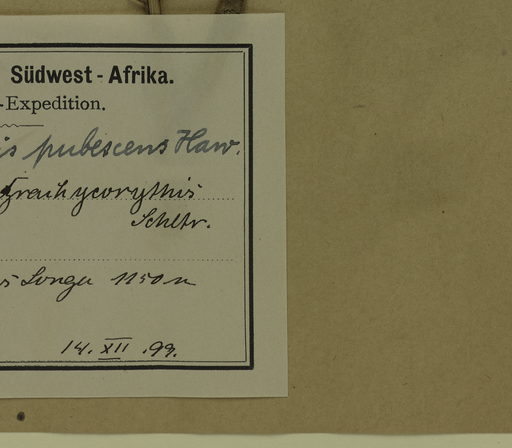 Südwest-Afrika.
-Expedition.
is pubescens Harv.
brachycorythis
Schltr.
Longa 1150 m
14. XII .99.